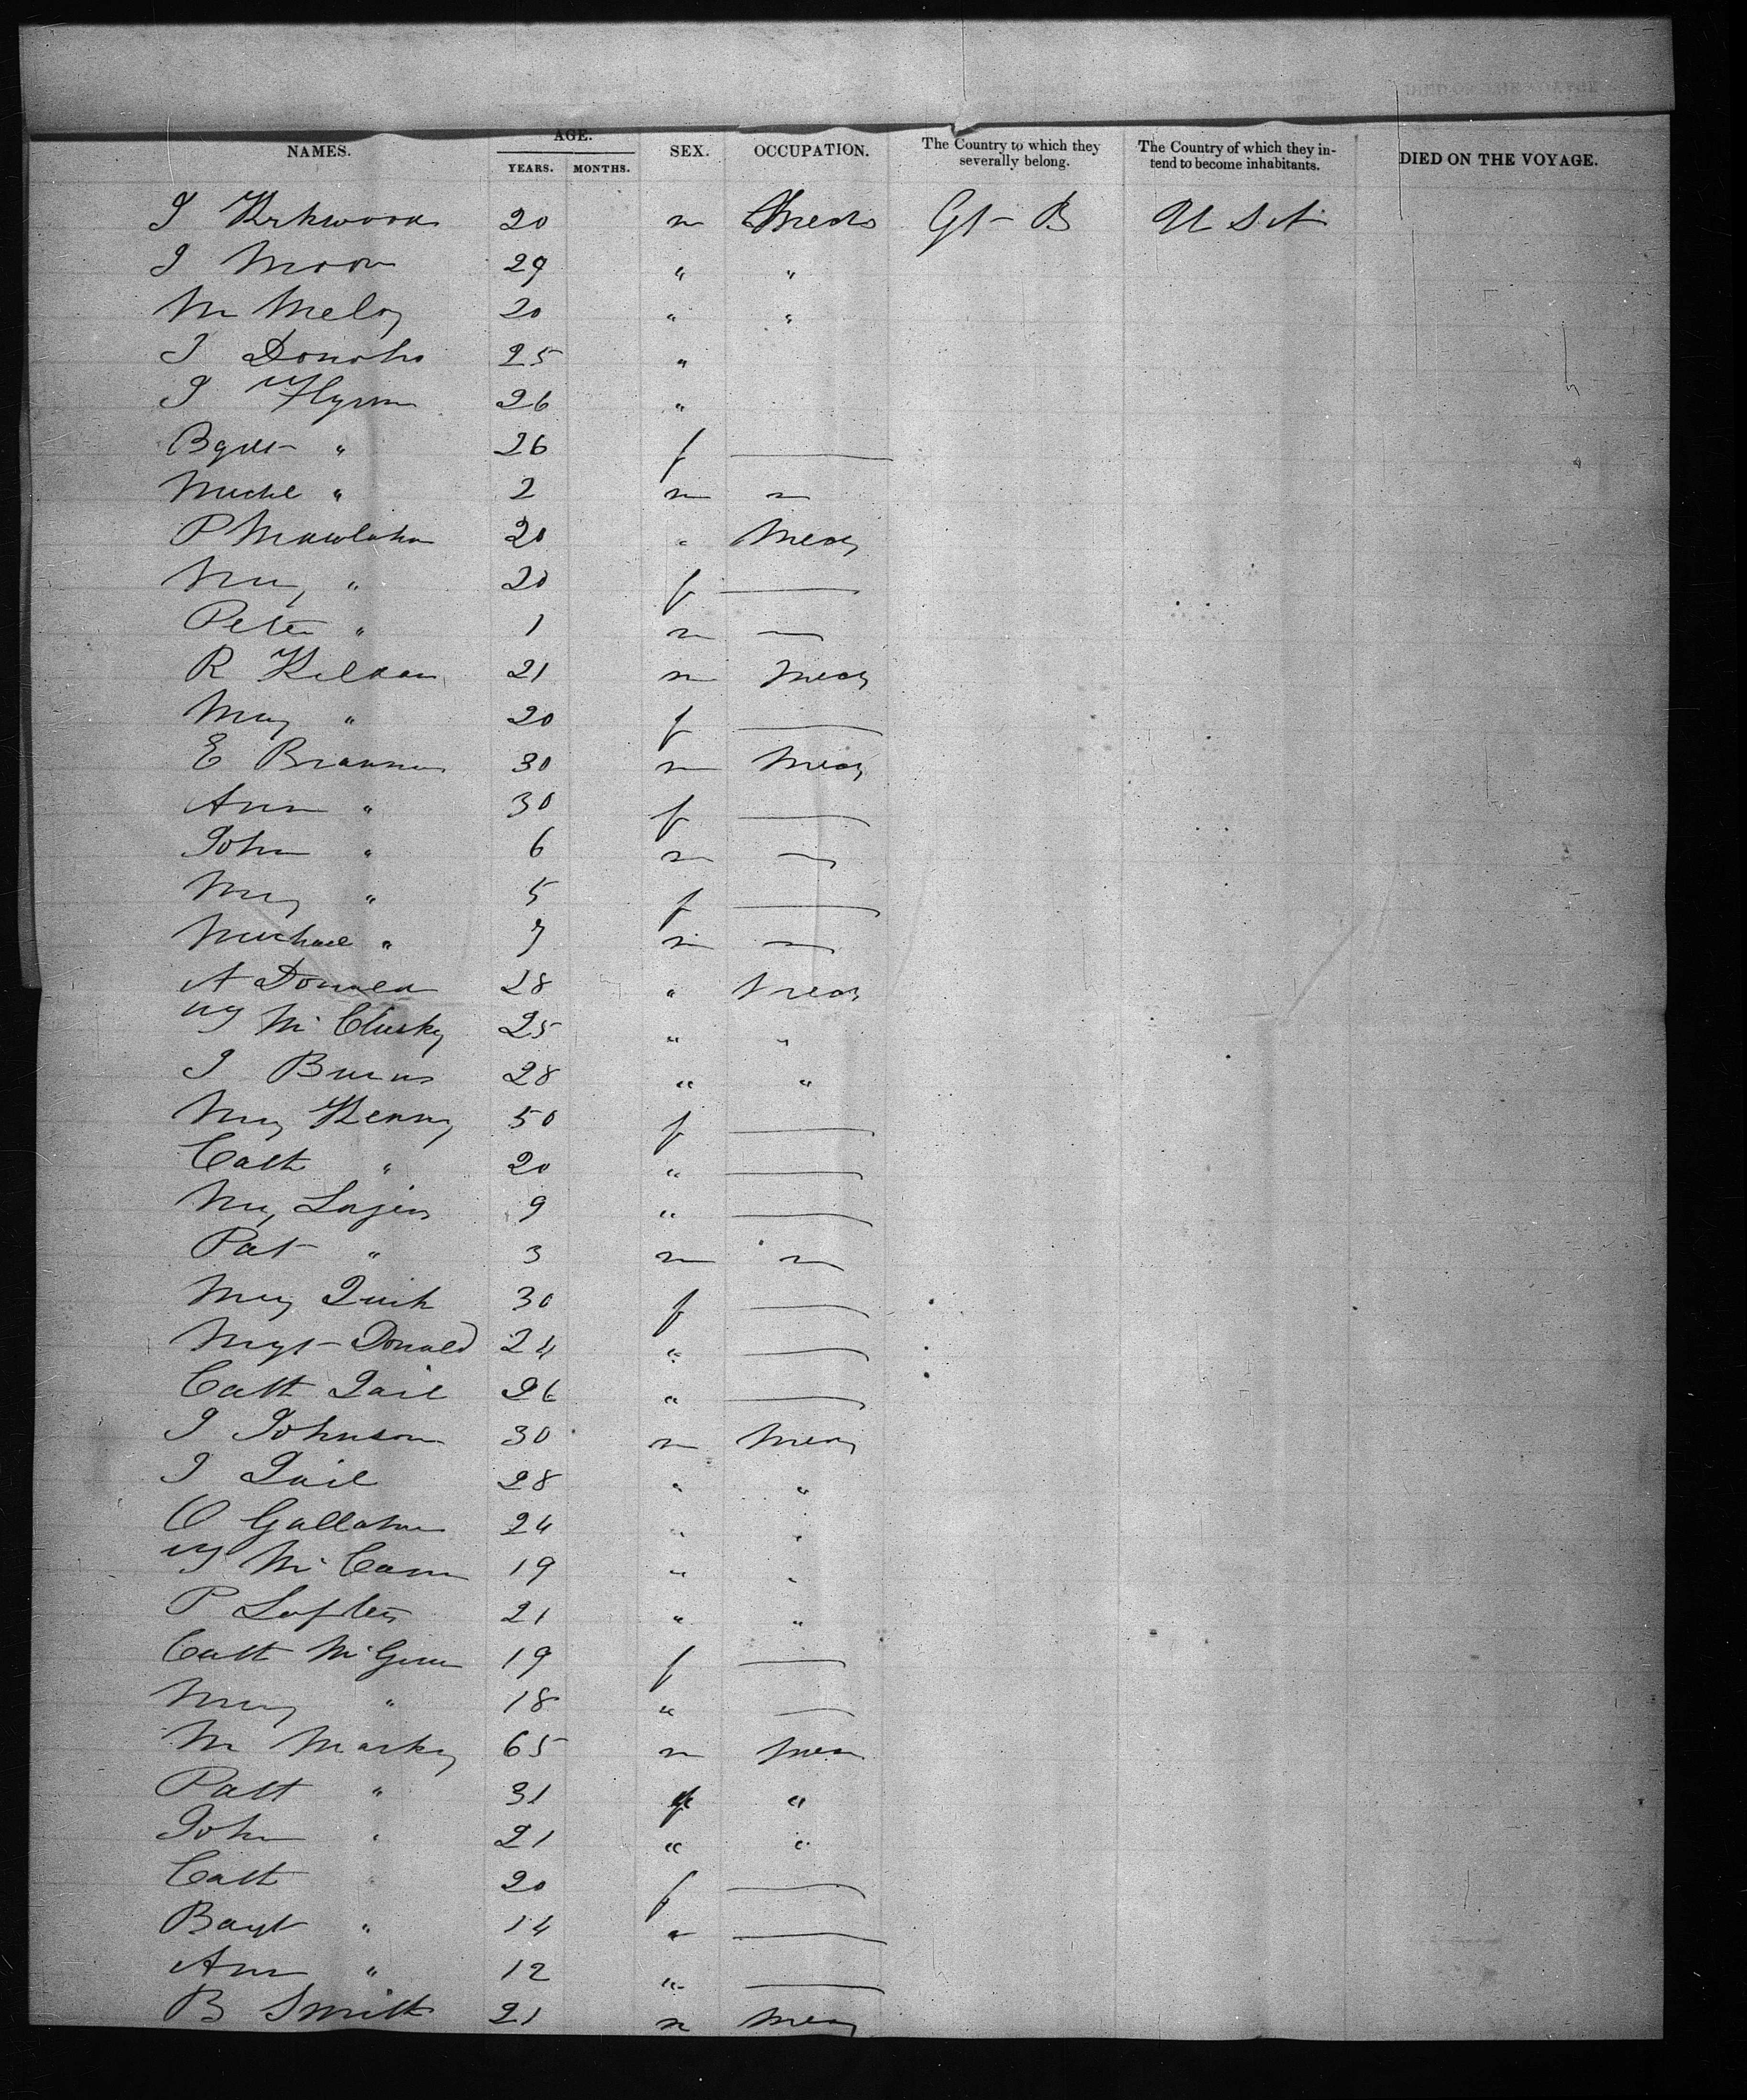 NAMES. AGE. YEARS. MONTHS. SEX. OCCUPATION. The Country to which they severally belong. The Country of which they intend to become inhabitants. DIED ON THE VOYAGE.
J Kirkwood 20 m Mechs Gt B U S A
J Moon 29 " "
M Meloy 20 " "
J Donoho 25 "
J Flynn 26 "
Bgt " 26 f
Michl " 2 m
P 20 " Mech
Mary " 20 f
Peter " 1 m
R 21 m Mech
Mary " 20 f
E Brannan 30 m Mech
Ann " 30 f
John " 6 m
Mary " 5 f
Michael " 7 m
A Donald 28 " Mech
McClusky 25 " "
J Burns 28 " "
Mary Kenny 50 f
Cath " 20 "
Mary 9 "
Pat " 3 m
Mary Quick 30 f
Mgt Donald 24 "
Cath Quil 26 "
J Johnson 30 m Mech
J Quil 28 " "
O Gallaher 24 " "
McCann 19 " "
P Loftus 21 " "
Cath McGinn 19 f
Mary " 18 "
M Marky 65 m Mech
Patt " 31 "
John " 21 " "
Cath " 20 f
" 14 "
Ann " 12 "
B Smith 21 m Mech